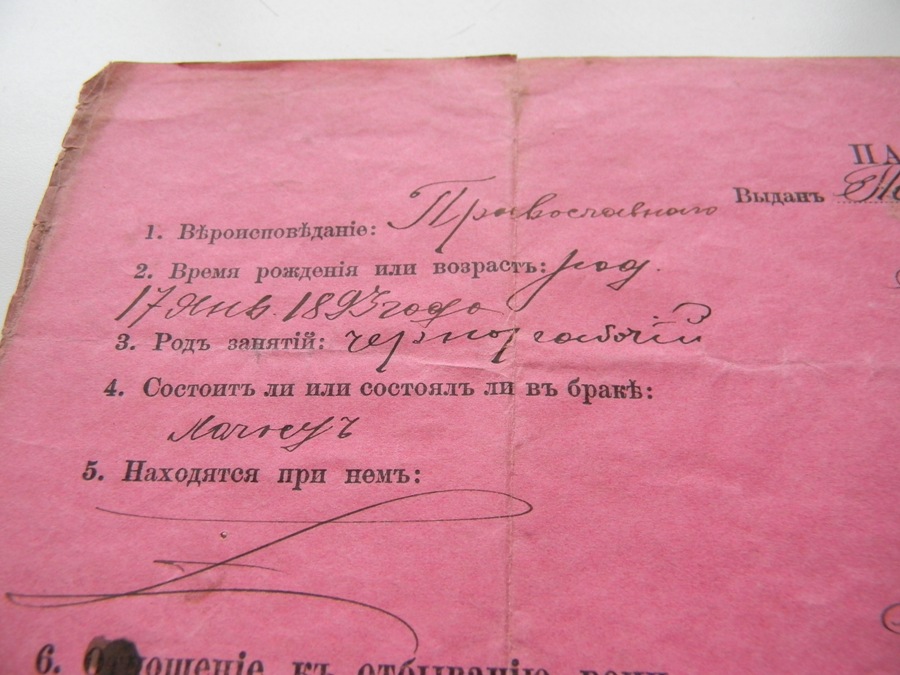 ПА
Выданъ
1. Вѣроисповѣданіе: Православнаго
2. Время рожденія или возрастъ: род.
17 Янв. 1893 года
3. Родъ занятій: чернорабочій
4. Состоитъ ли или состоялъ ли въ бракѣ:
5. Находятся при немъ:
6. Отношеніе къ отбыванію воин